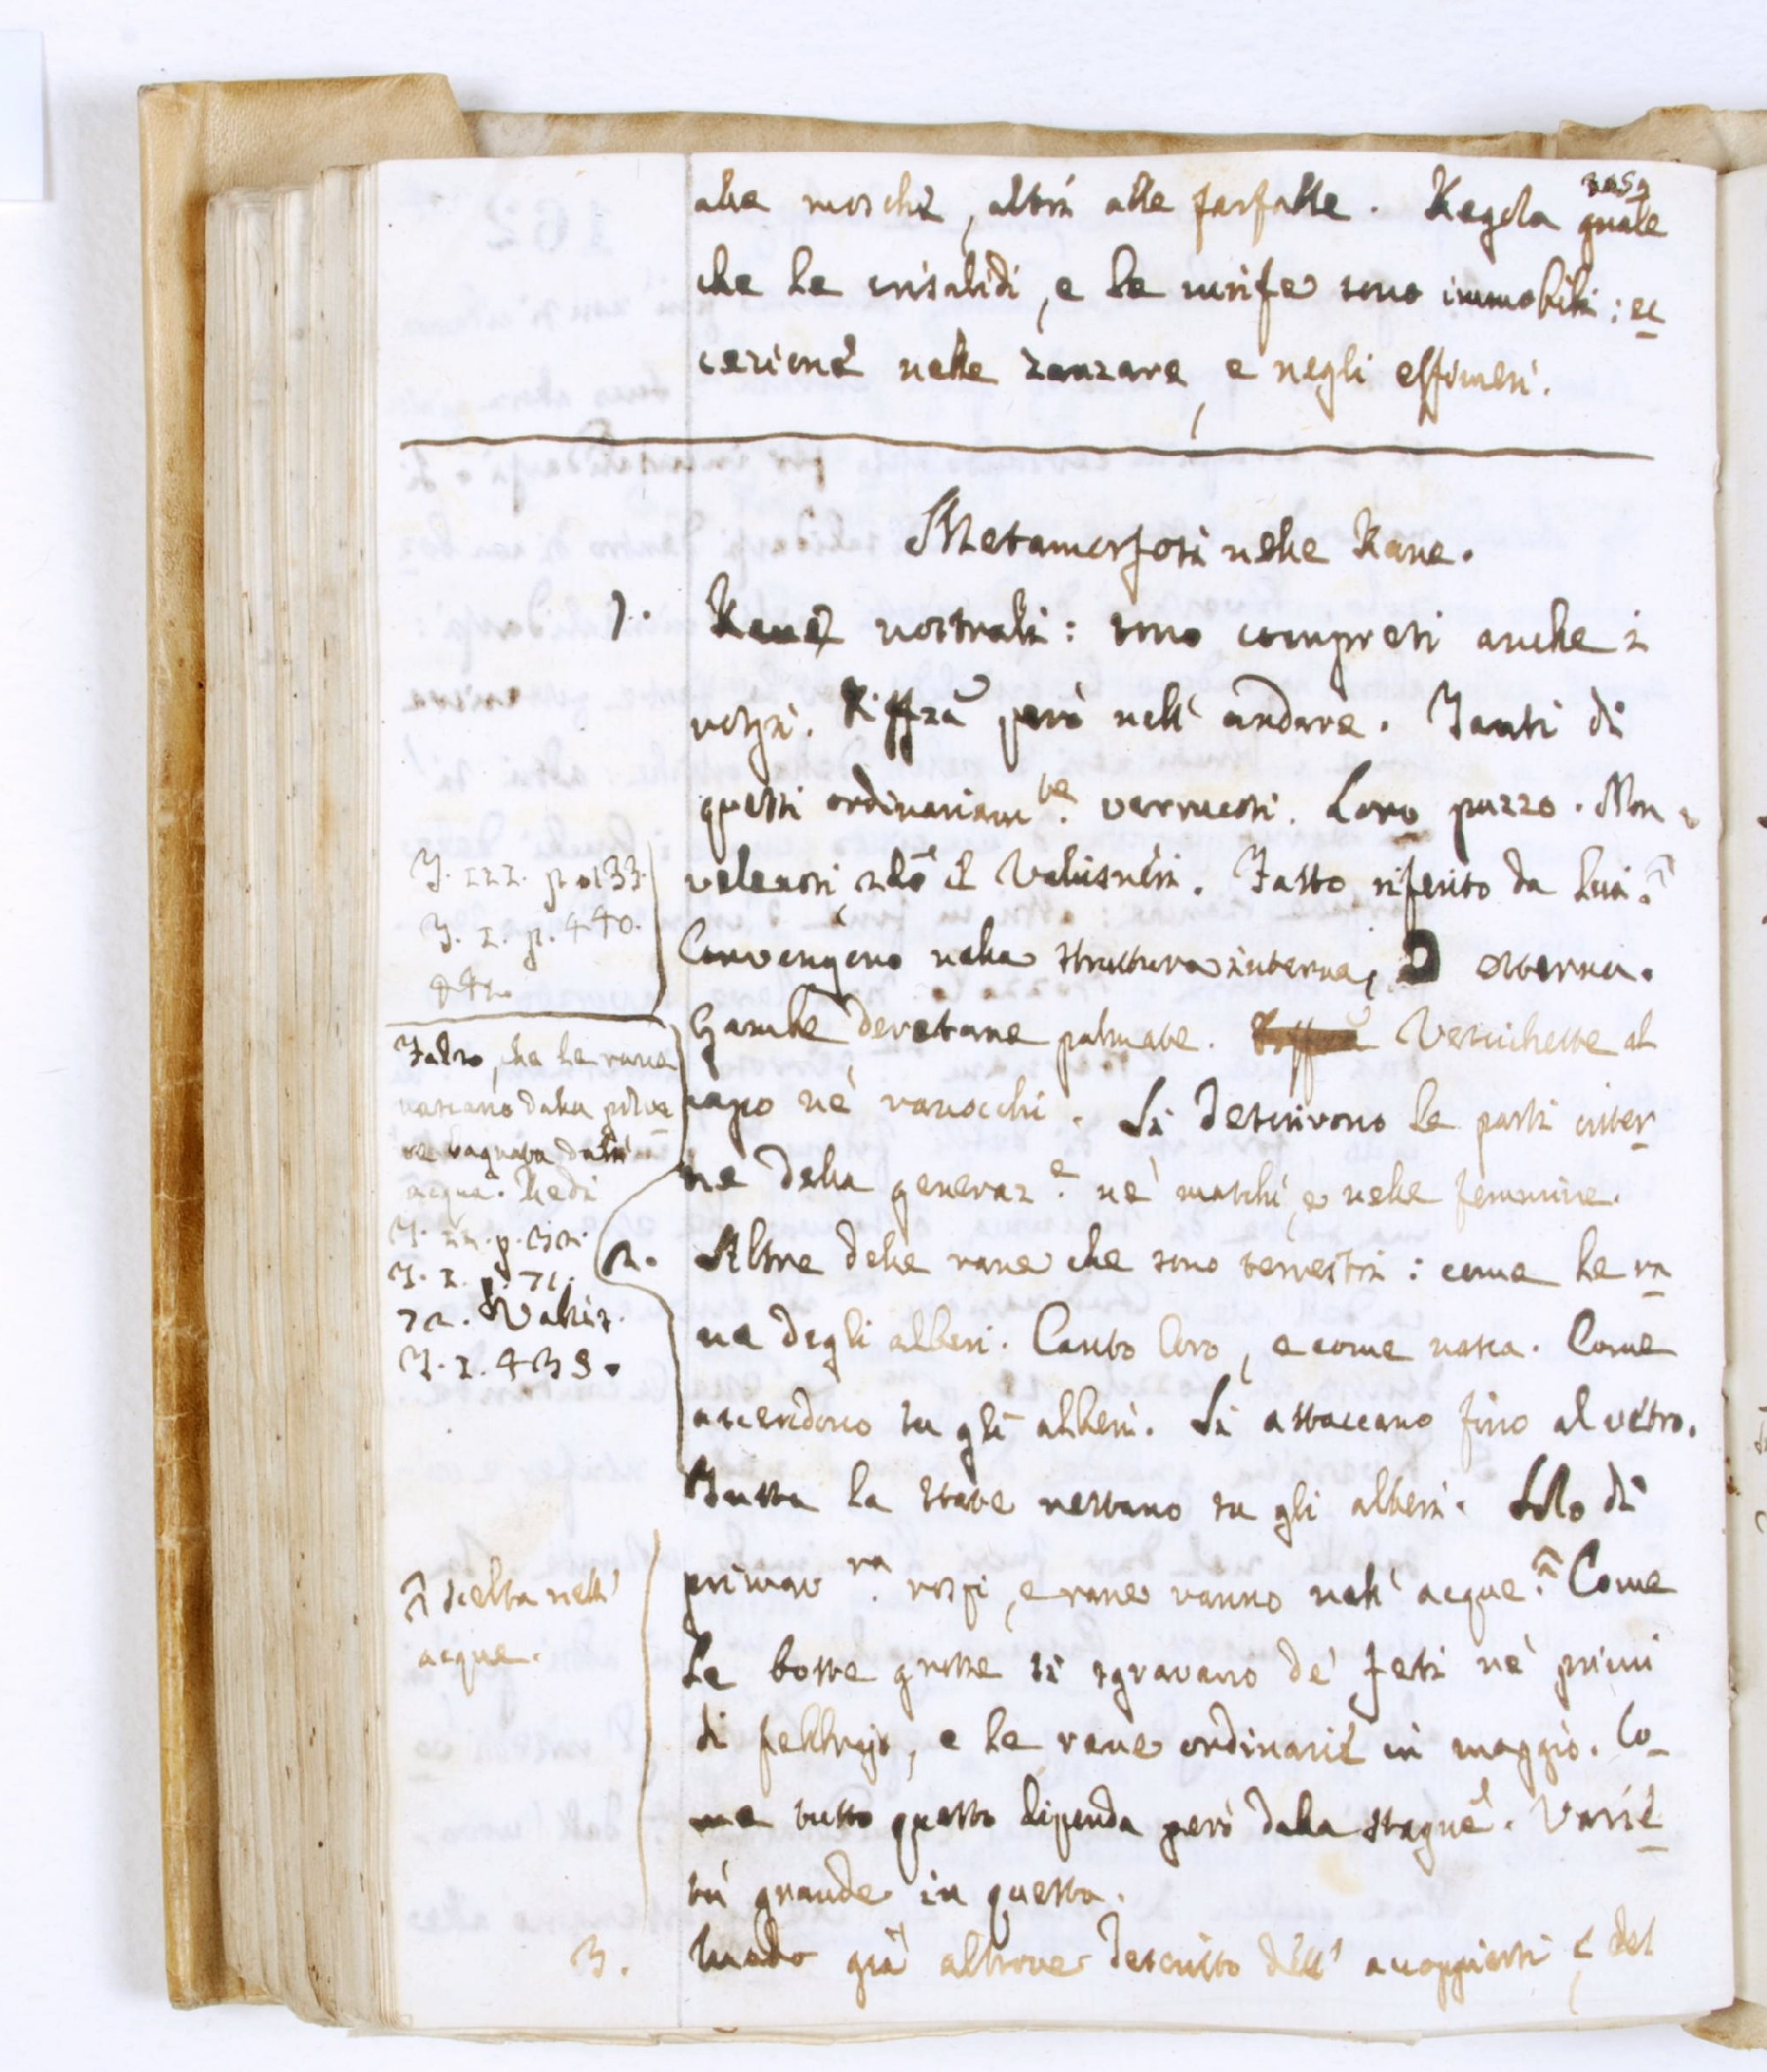 alle mosche, altri alle farfalle. Regola gnale
che le crisalidi, e le ninfe sono immobili: ec
cezione nelle zanzare, e negli effimeri.
Metamorfosi nelle Rane.
1. Rane nostrali: sono compresi anche i
rospi. Diffza però nell' andare. Tanti di
questi ordinariamte. verrucosi. Loro puzzo. Non
velenosi sdo il Valisneri. Fatto riferito da lui.
T. III. p. 133.
T. I. p. 440.
441.
Convengono nella struttura interna, esterna.
Gambe deretane palmate. Vescichette al
capo ne' ranocchi. Si descrivono le parti inter
ne della generaz.e ne' maschi, e nelle femmine.
Falso, che le rane
nascano dalla polve
re bagnata dall'
acqua. Redi
T. II. p. 32.
T. I. p. 71.
72. Valis.
T. I. 439.
2. Altre delle rane che sono terrestri: come le ra
ne degli alberi. Canto loro, e come nasca. Come
ascendono su gli alberi. Si attaccano fino al vetro.
Tutta la state restano su gli alberi. Solo di
primavra. rospi, e rane vanno nell' acque. Come
scelta nell'
acque.
le botte grosse si sgravano de' feti ne' primi
di febbrajo, e le rane ordinarie in maggio. Co-
me tutto questo dipenda però dalla stagne. Varie
tà grande in questo.
3. Modo già altrove descritto dell' accoppiarsi, del